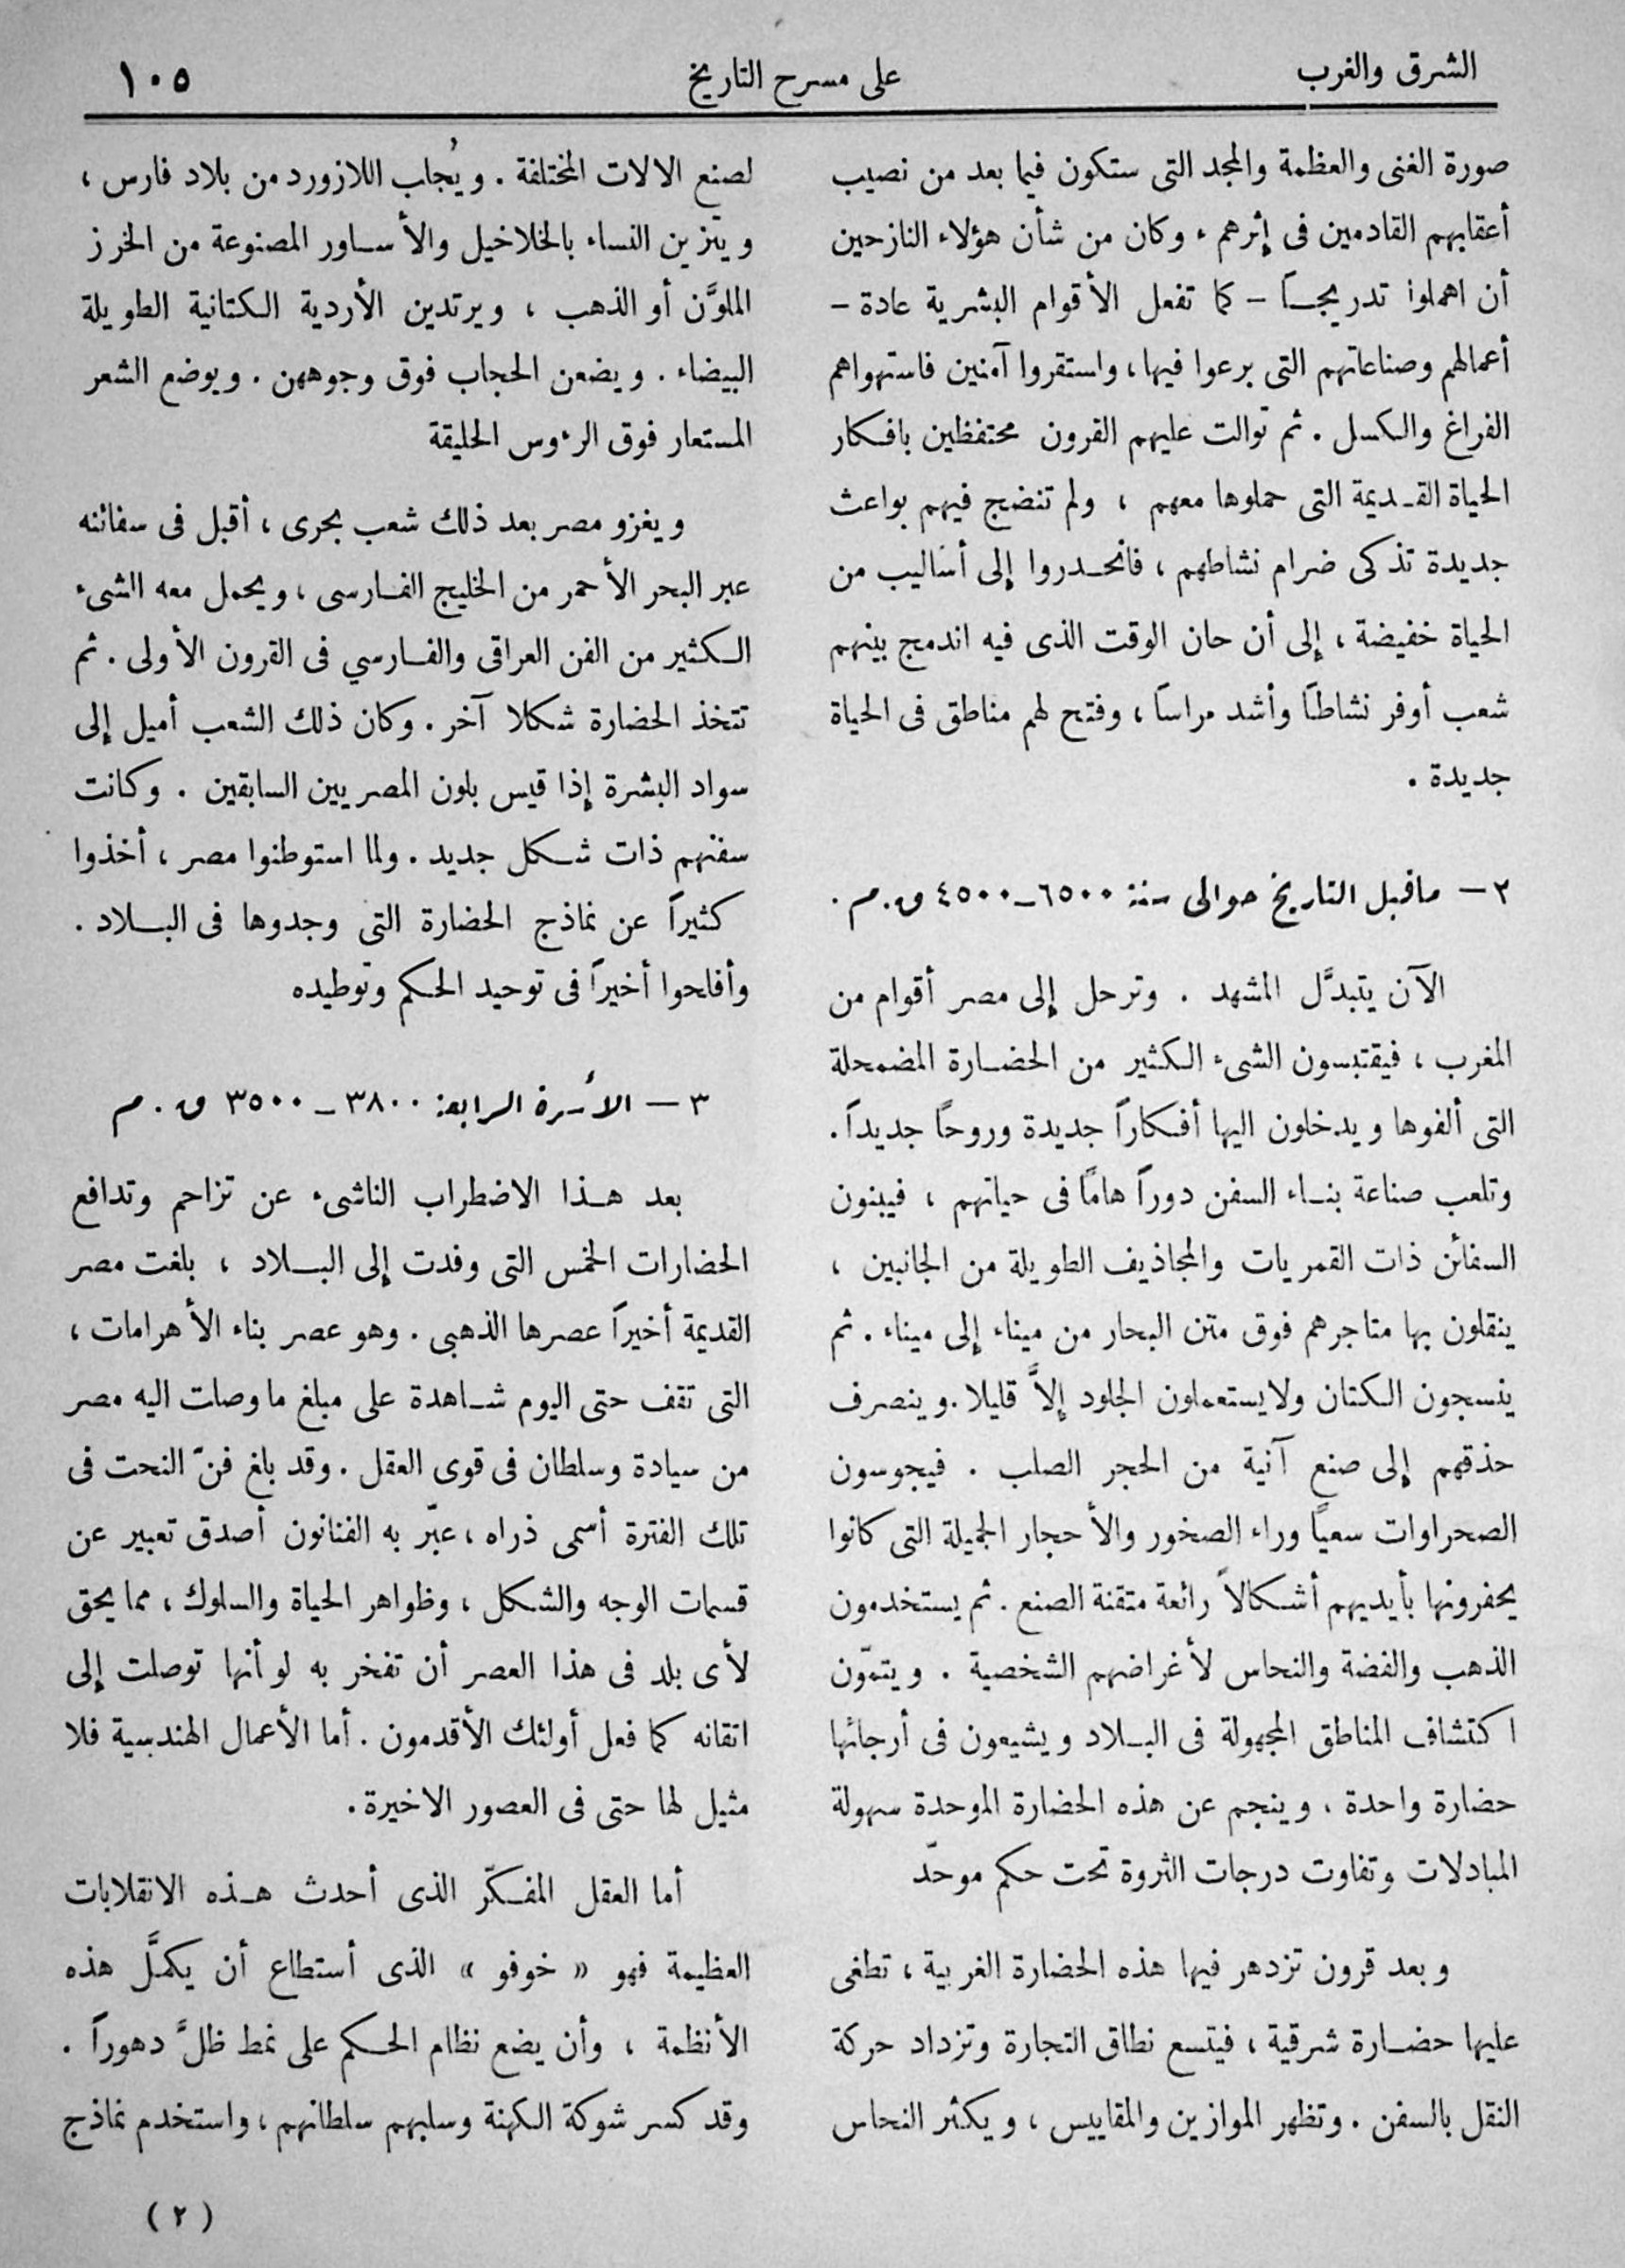 الشرق والغرب
على مسرح التاريخ
١٠٥
صورة الغنى والعظمة والمجد التى ستكون فيما بعد من نصيب
أعقابهم القادمين فى إثرهم ، وكان من شأن هؤلاء النازحين
أن اهملوا تدريجـاً – كما تفعل الأقوام البشرية عادة –
أعمالهم وصناعاتهم التى برعوا فيها ، واستقروا آمنين فاستهواهم
الفراغ والكسل . ثم توالت عليهم القرون محتفظين بافكار
الحياة القـديمة التى حملوها معهم ، ولم تنضج فيهم بواعث
جديدة تذكى ضرام نشاطهم ، فانحـدروا إلى أساليب من
الحياة خفيضة ، إلى أن حان الوقت الذى فيه اندمج بينهم
شعب أوفر نشاطاً وأشد مراساً ، وفتح لهم مناطق فى الحياة
جديدة .
٢ – ماقبل التاريخ حوالى سنة ٦٥٠٠ – ٤٥٠٠ ق . م .
الآن يتبدَّل المشهد . وترحل إلى مصر أقوام من
المغرب ، فيقتبسون الشىء الكثير من الحضـارة المضمحلة
التى ألفوها ويدخلون اليها أفكاراً جديدة وروحاً جديداً .
وتلعب صناعة بنـاء السفن دوراً هاماً فى حياتهم ، فيبنون
السفائن ذات القمريات والمجاذيف الطويلة من الجانبين ،
ينقلون بها متاجرهم فوق متن البحار من ميناء إلى ميناء . ثم
ينسجون الكتان ولايستعملون الجلود إلاَّ قليلا . وينصرف
حذقهم إلى صنع آنية من الحجر الصلب . فيجوسون
الصحراوات سعياً وراء الصخور والأحجار الجميلة التى كانوا
يحفرونها بأيديهم أشكالاً رائعة متقنة الصنع . ثم يستخدمون
الذهب والفضة والنحاس لأغراضهم الشخصية . ويتمّون
اكتشاف المناطق المجهولة فى البـلاد ويشيعون فى أرجائها
حضارة واحدة ، وينجم عن هذه الحضارة الموحدة سهولة
المبادلات وتفاوت درجات الثروة تحت حكم موحّد
وبعد قرون تزدهر فيها هذه الحضارة الغربية ، تطغى
عليها حضـارة شرقية ، فيتسع نطاق التجارة وتزداد حركة
النقل بالسفن . وتظهر الموازين والمقاييس ، ويكثر النحاس
لصنع الالات المختلفة . ويُجاب اللازورد من بلاد فارس ،
ويتزين النساء بالخلاخيل والأسـاور المصنوعة من الخرز
الملوَّن أو الذهب ، ويرتدين الأردية الكتانية الطويلة
البيضاء . ويضعن الحجاب فوق وجوههن . ويوضع الشعر
المستعار فوق الرءوس الحليقة
ويغزو مصر بعد ذلك شعب بحرى ، أقبل فى سفائنه
عبر البحر الأحمر من الخليج الفـارسى ، ويحمل معه الشىء
الـكثير من الفن العراقى والفـارسي فى القرون الأولى . ثم
تتخذ الحضارة شكلا آخر . وكان ذلك الشعب أميل إلى
سواد البشرة إذا قيس بلون المصريين السابقين . وكانت
سفنهم ذات شـكل جديد . ولما استوطنوا مصر ، أخذوا
كثيراً عن نماذج الحضارة التى وجدوها فى البـلاد .
وأفلحوا أخيراً فى توحيد الحكم وتوطيده
٣ – الأسرة الرابعة ٣٨٠٠ – ٣٥٠٠ ق . م
بعد هـذا الاضطراب الناشىء عن تزاحم وتدافع
الحضارات الخمس التى وفدت إلى البـلاد ، بلغت مصر
القديمة أخيراً عصرها الذهبى . وهو عصر بناء الأهرامات ،
التى تقف حتى اليوم شـاهدة على مبلغ ما وصلت اليه مصر
من سيادة وسلطان فى قوى العقل . وقد بلغ فنّ النحت فى
تلك الفترة أسمى ذراه ، عبّر به الفنانون أصدق تعبير عن
قسمات الوجه والشكل ، وظواهر الحياة والسلوك ، مما يحق
لأى بلد فى هذا العصر أن تفخر به لو أنها توصلت إلى
اتقانه كما فعل أولئك الأقدمون . أما الأعمال الهندسية فلا
مثيل لها حتى فى العصور الاخيرة .
أما العقل المفـكّر الذى أحدث هـذه الانقلابات
العظيمة فهو « خوفو » الذى أستطاع أن يكمَّل هذه
الأنظمة ، وأن يضع نظام الحـكم على نمط ظلَّ دهوراً .
وقد كسر شوكة الكهنة وسلبهم سلطانهم ، واستخدم نماذج
( ٢ )